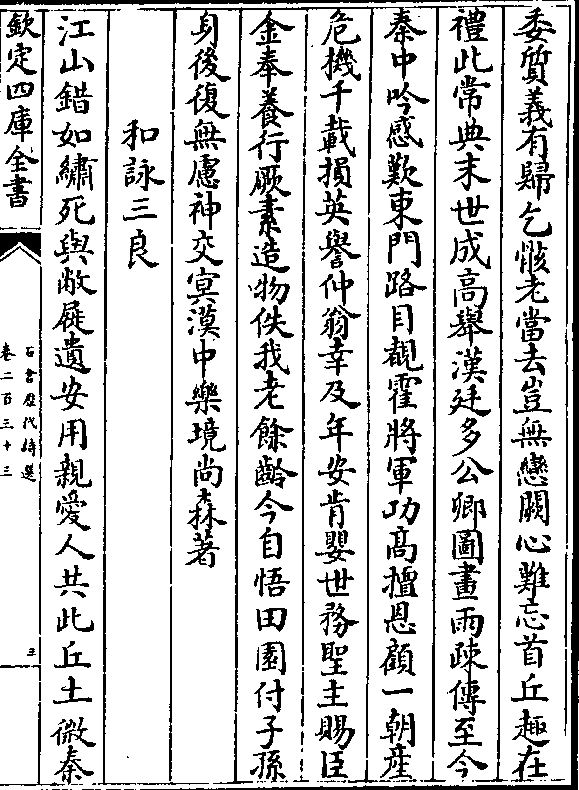 委質義有歸乞骸老當去豈無戀闕心難忘首丘趣在
禮此常典末世成高舉漢廷多公卿圖畫兩疎傳至今
秦中吟感歎東門路目覩霍將軍功高擅恩顧一朝產
危機千載損英譽仲翁幸及年安肯嬰世務聖主賜臣
金奉養行厥素造物佚我老餘齡今自悟田園付子孫
身後復無慮神交㝠漠中樂境尚森著
和詠三良
江山錯如繡死與敝屣遺安用親愛人共此丘土微秦
欽定四庫全書
石倉歷代詩選
卷二百三十三
三